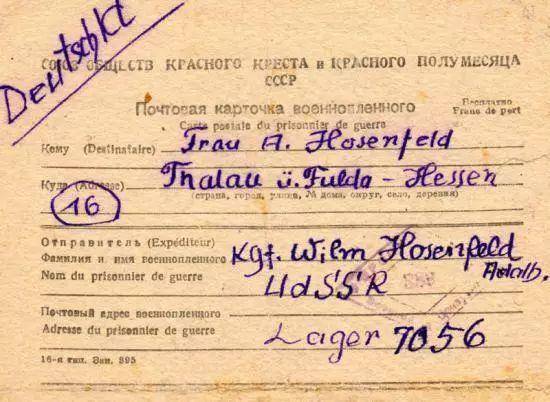 Deutschld
СОЮЗ ОБЩЕСТВ КРАСНОГО КРЕСТА и КРАСНОГО ПОЛУМЕСЯЦА
СССР
Почтовая карточка военнопленного
Бесплатно
Franc de port
Carte postale du prisonnier de guerre
Кому (Destinataire) Frau A. Hosenfeld
Куда (Adresse) Thalau ü. Fulda - Hessen
(страна, город, улица, № дома, округ, село, деревня)
16
Отправитель (Expéditeur)
Фамилия и имя военнопленного Kgf. Wilm Hosenfeld
Nom du prisonnier de guerre UdSSR Adalb.
Почтовый адрес военнопленного
Adresse du prisonnier de guerre Lager 7056
16-я тип. Зак. 895